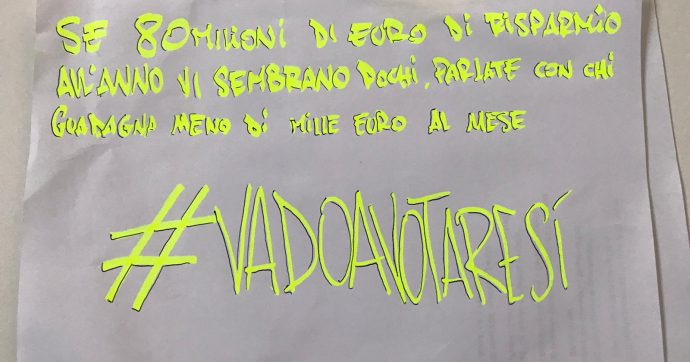 SE 80 MILIONI DI EURO DI RISPARMIO
ALL'ANNO VI SEMBRANO POCHI, PARLATE CON CHI
GUADAGNA MENO DI MILLE EURO AL MESE
#VADOAVOTARESÍ